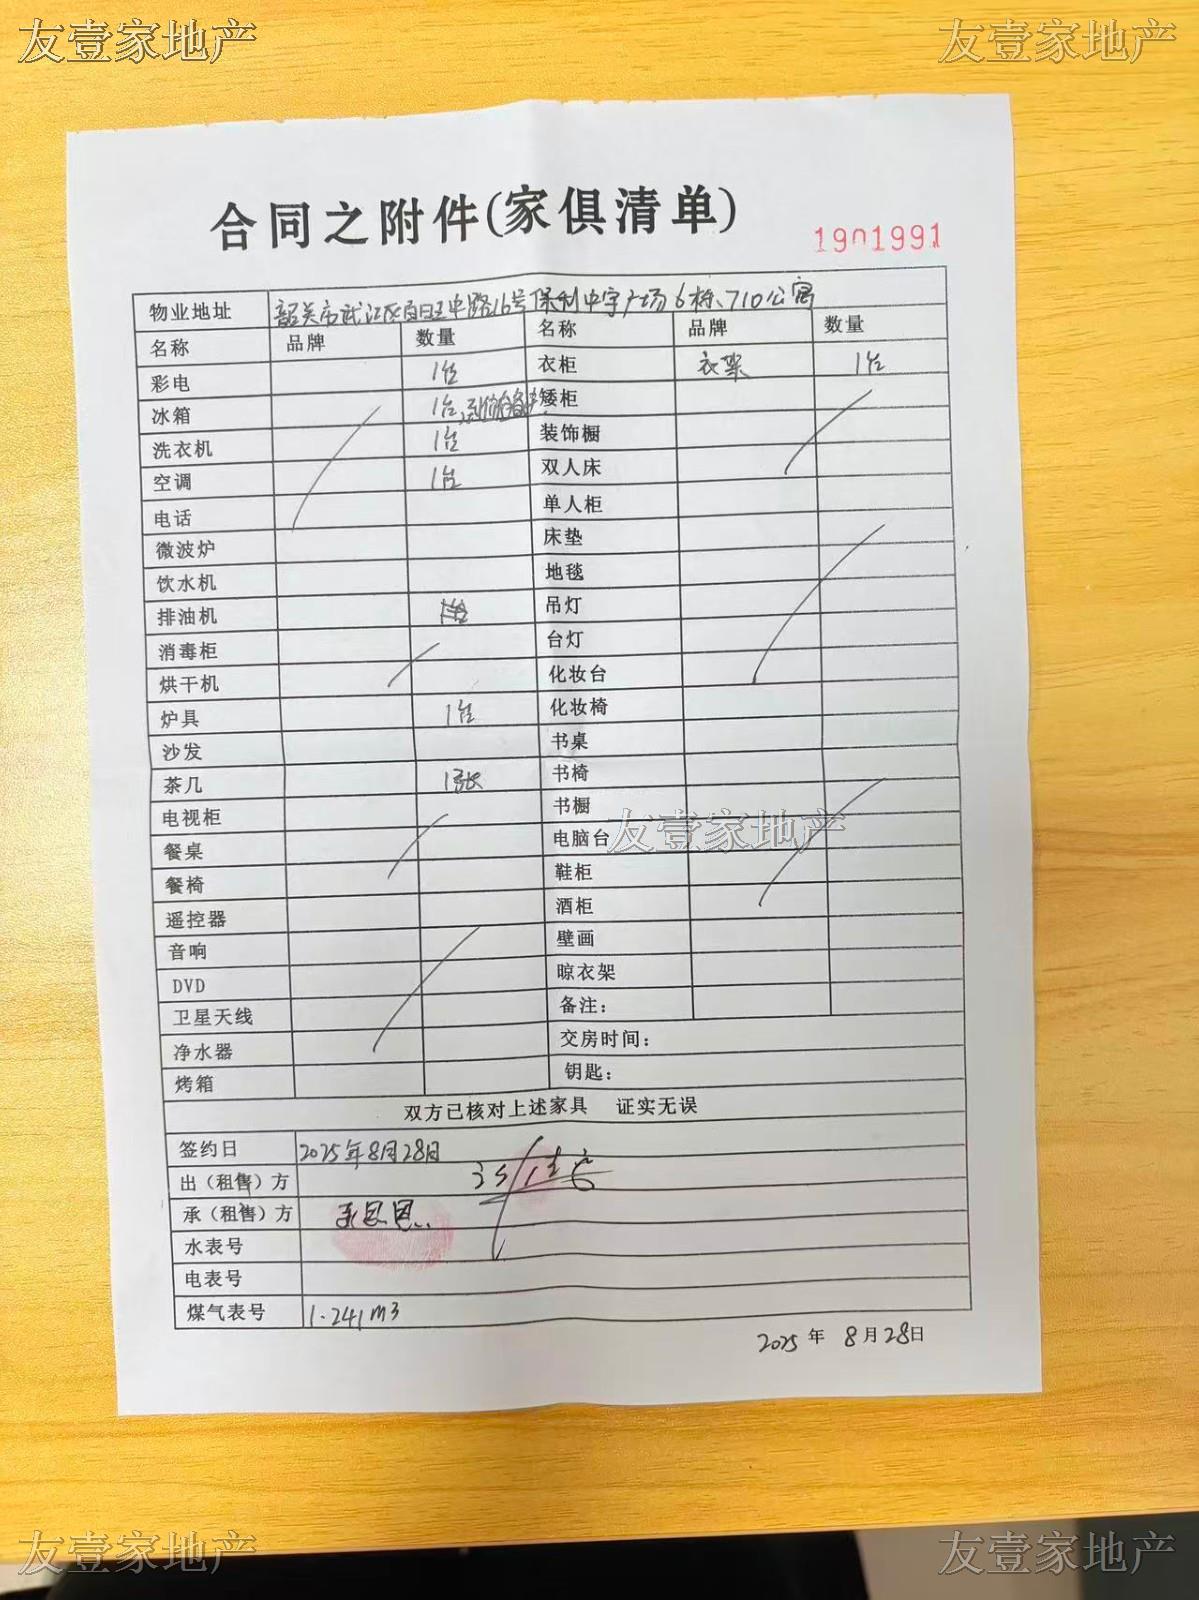 友壹家地产 友壹家地产
合同之附件(家俱清单)
1901991
物业地址 韶关市武江区百旺中路16号保利中宇广场6栋、710公寓
名称 品牌 数量 名称 品牌 数量
彩电 1台 衣柜 衣架 1台
冰箱 1台 矮柜
洗衣机 1台 装饰橱
空调 1台 双人床
电话 单人柜
微波炉 床垫
饮水机 地毯
排油机 吊灯
消毒柜 台灯
烘干机 化妆台
炉具 1台 化妆椅
沙发 书桌
茶几 1张 书椅
电视柜 书橱
餐桌 电脑台
友壹家地产
餐椅 鞋柜
遥控器 酒柜
音响 壁画
DVD 晾衣架
卫星天线 备注：
净水器 交房时间：
烤箱 钥匙：
双方已核对上述家具 证实无误
签约日 2025年8月28日
出（租售）方
承（租售）方
水表号
电表号
煤气表号 1.241m3
2025年 8月28日
友壹家地产 友壹家地产